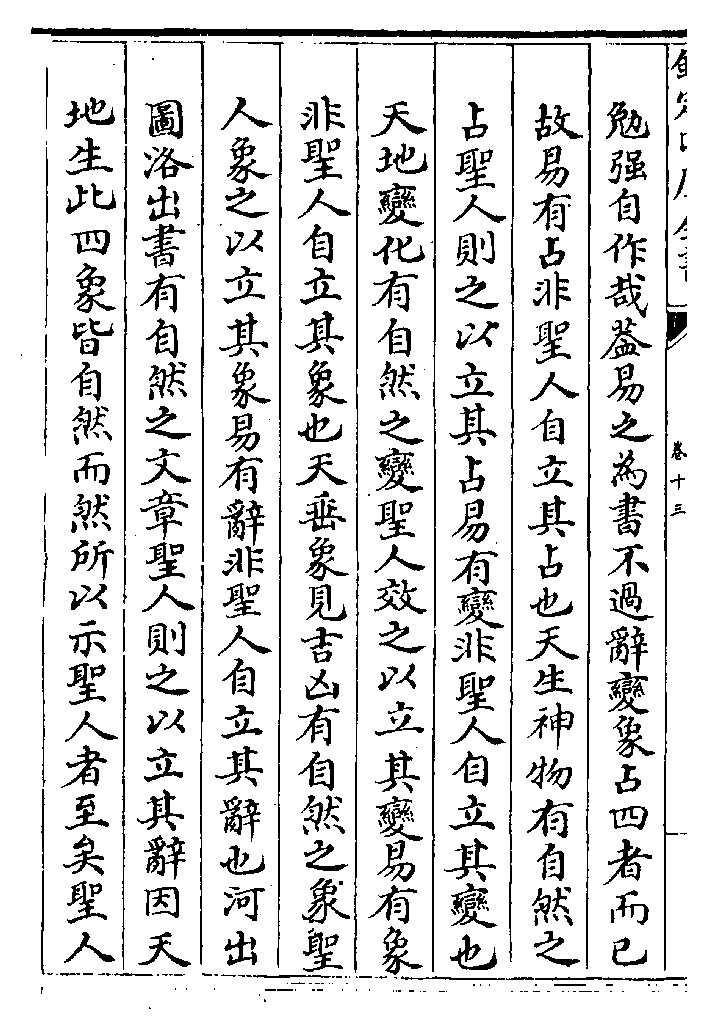 勉强自作哉葢易之為書不過辭變象占四者而已
故易有占非聖人自立其占也天生神物有自然之
占聖人則之以立其占易有變非聖人自立其變也
天地變化有自然之變聖人效之以立其變易有象
非聖人自立其象也天垂象見吉凶有自然之象聖
人象之以立其象易有辭非聖人自立其辭也河出
圖洛出書有自然之文章聖人則之以立其辭因天
地生此四象皆自然而然所以示聖人者至矣聖人
卷十三